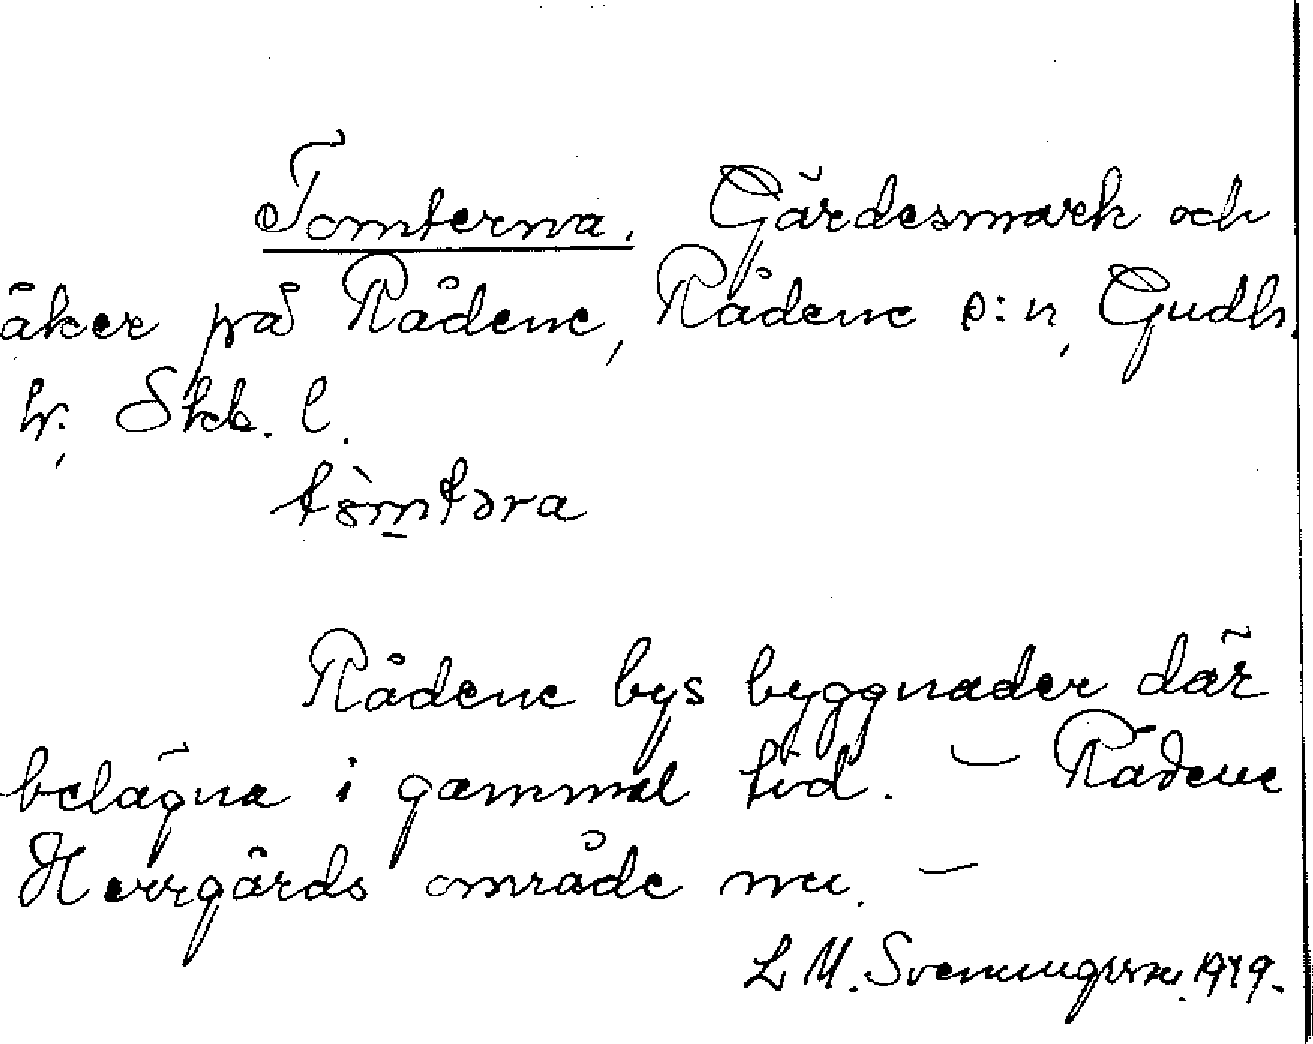 Tomterna. Gärdesmark och
åker på Rådene, Rådene s:n, Gudh.
hr, Skb. l.
tòmtəra
Rådene bys byggnader där
belägna i gammal tid. – Rådene
Herrgårds område nu. –
L M. Svenungsson. 1919.